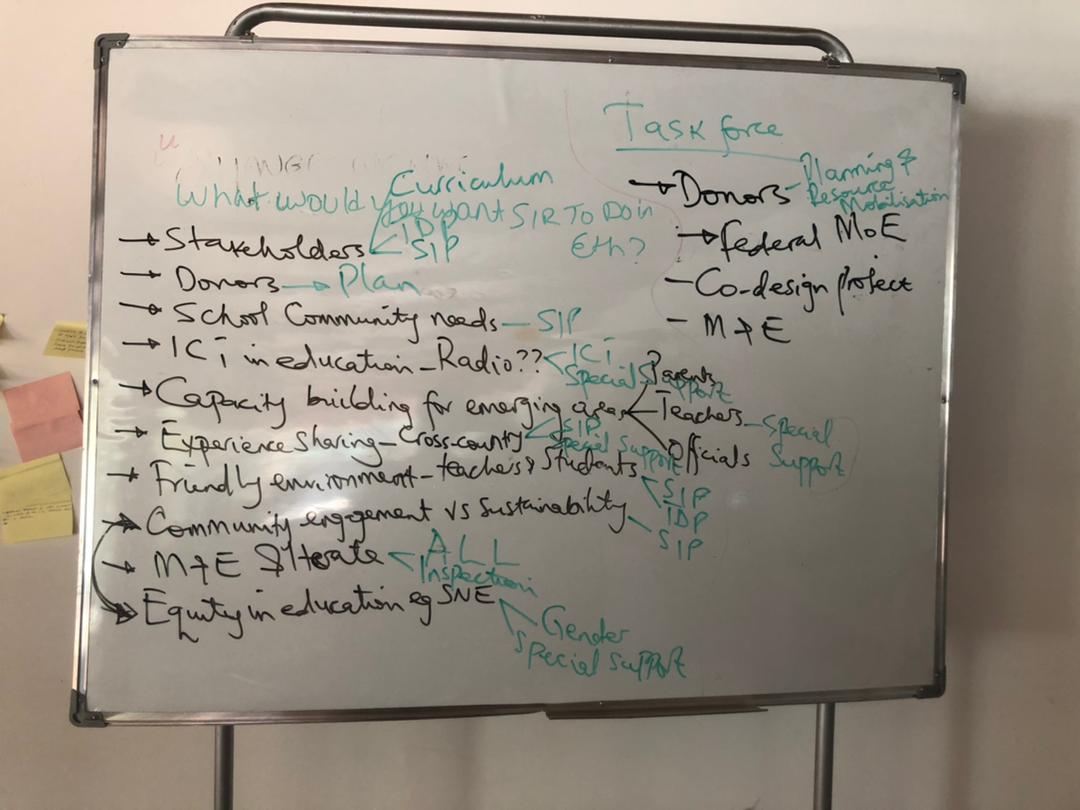 Task force
→ Donors - Planning & Resource Mobilisation
→ federal MoE
- Co-design project
- M & E
What would you want SIR To Do in Eth?
→ Stakeholders < Curriculum
IDP
SIP
→ Donors → Plan
→ School Community needs - SIP
→ ICT in education - Radio?? < ICT
Special Support
→ Capacity building for emerging areas < Parents
Teachers - Special Support
Officials
→ Experience Sharing - Cross-county < SIP
Special Support
→ Friendly environment - teachers & Students < SIP
IDP
→ Community engagement vs Sustainability - SIP
→ M & E & Iterate < ALL
Inspection
→ Equity in education eg SNE < Gender
Special support